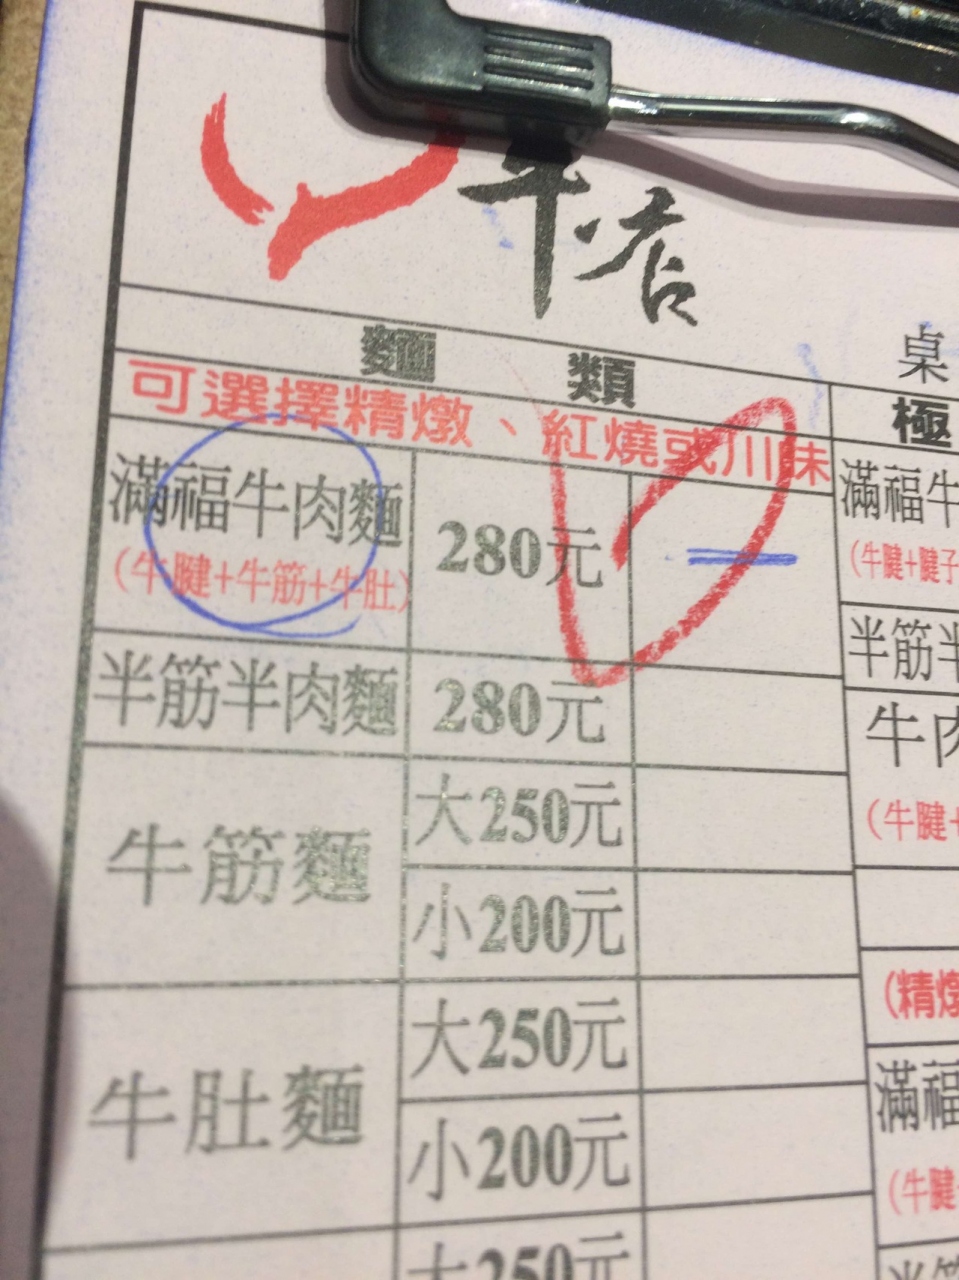 牛店
桌
麵 類
極
可選擇精燉、紅燒或川味
滿福牛肉麵 280元 一
(牛腱+牛筋+牛肚)
滿福牛
(牛腱+腱子
半筋半肉麵 280元
半筋半
牛筋麵 大250元
小200元
牛肉
(牛腱+
(精燉
牛肚麵 大250元
小200元
滿福
(牛腱
大250元
半筋